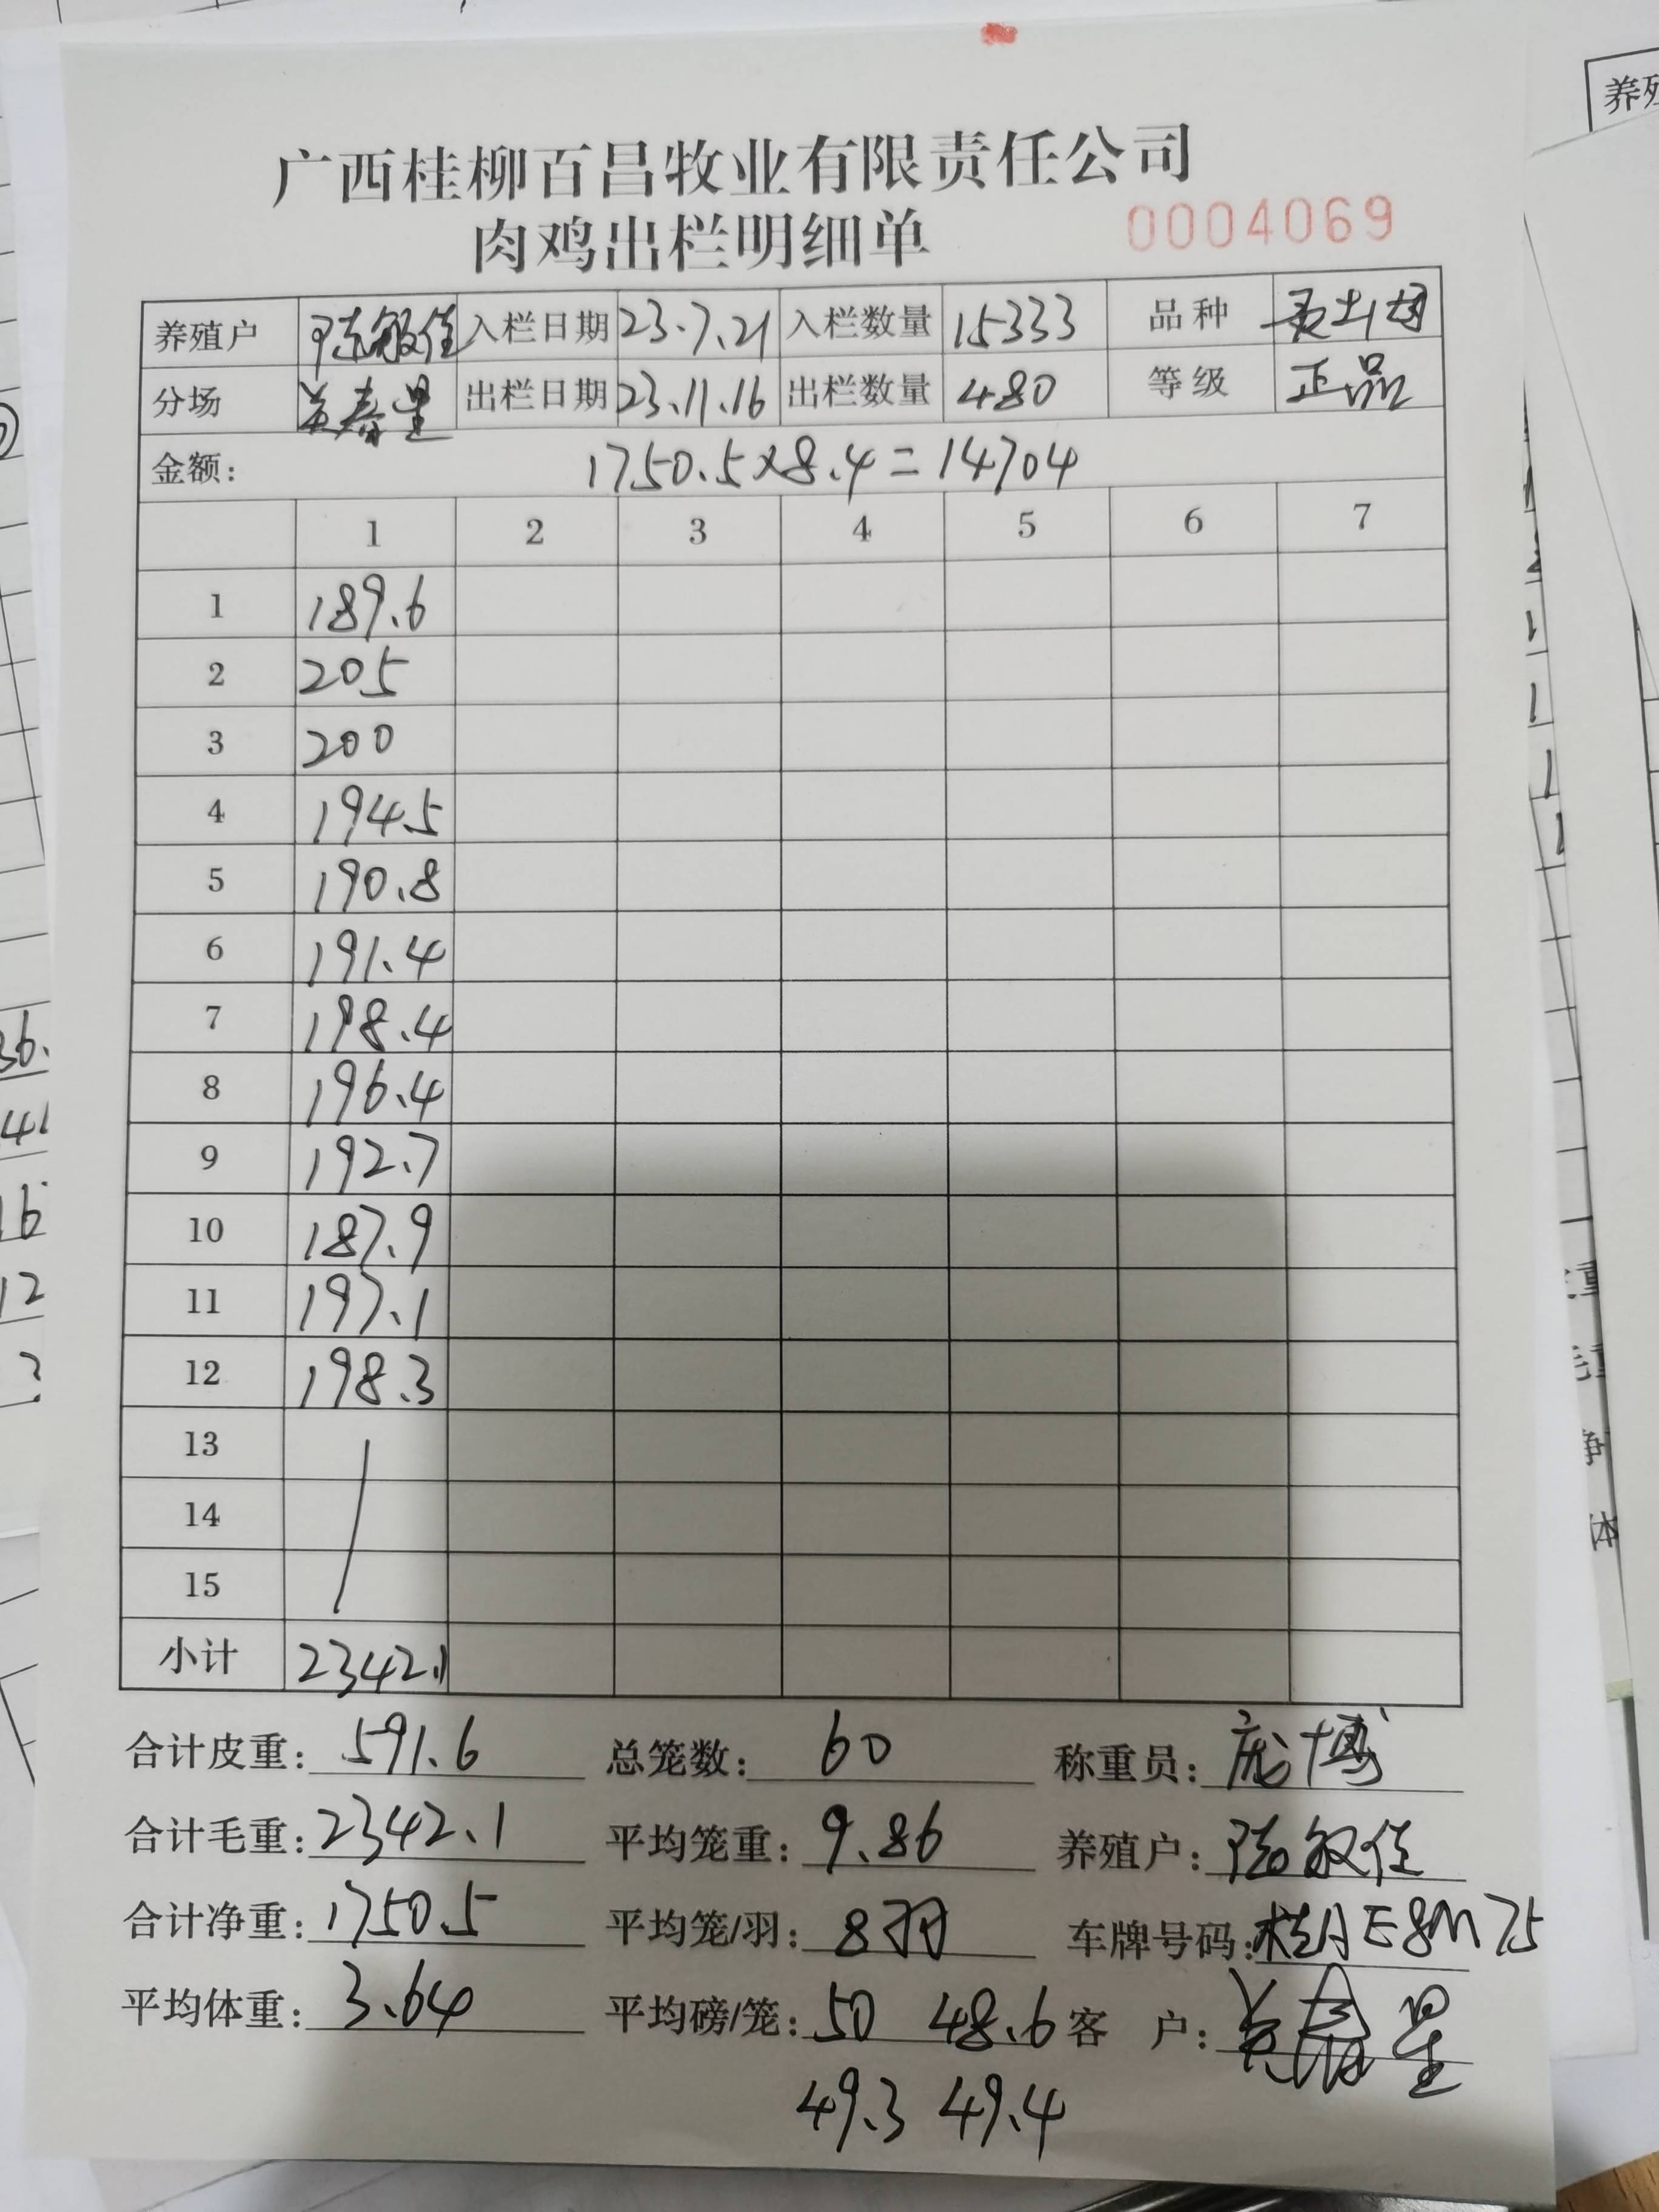 广西桂柳百昌牧业有限责任公司
肉鸡出栏明细单 0004069
养殖户 陆敏佳 入栏日期 23.7.21 入栏数量 15333 品种
分场 春星 出栏日期 23.11.16 出栏数量 480 等级 正品
金额: 1750.5×8.4=14704
1 2 3 4 5 6 7
1 189.6
2 205
3 200
4 194.5
5 190.8
6 191.4
7 198.4
8 196.4
9 192.7
10 187.9
11 197.1
12 198.3
13
14
15
小计 2342.1
合计皮重: 591.6 总笼数: 60 称重员: 庞博
合计毛重: 2342.1 平均笼重: 9.86 养殖户: 陆敏佳
合计净重: 1750.5 平均笼/羽: 8羽 车牌号码: 桂AE8M75
平均体重: 3.64 平均磅/笼: 50 48.6 客 户: 星
49.3 49.4